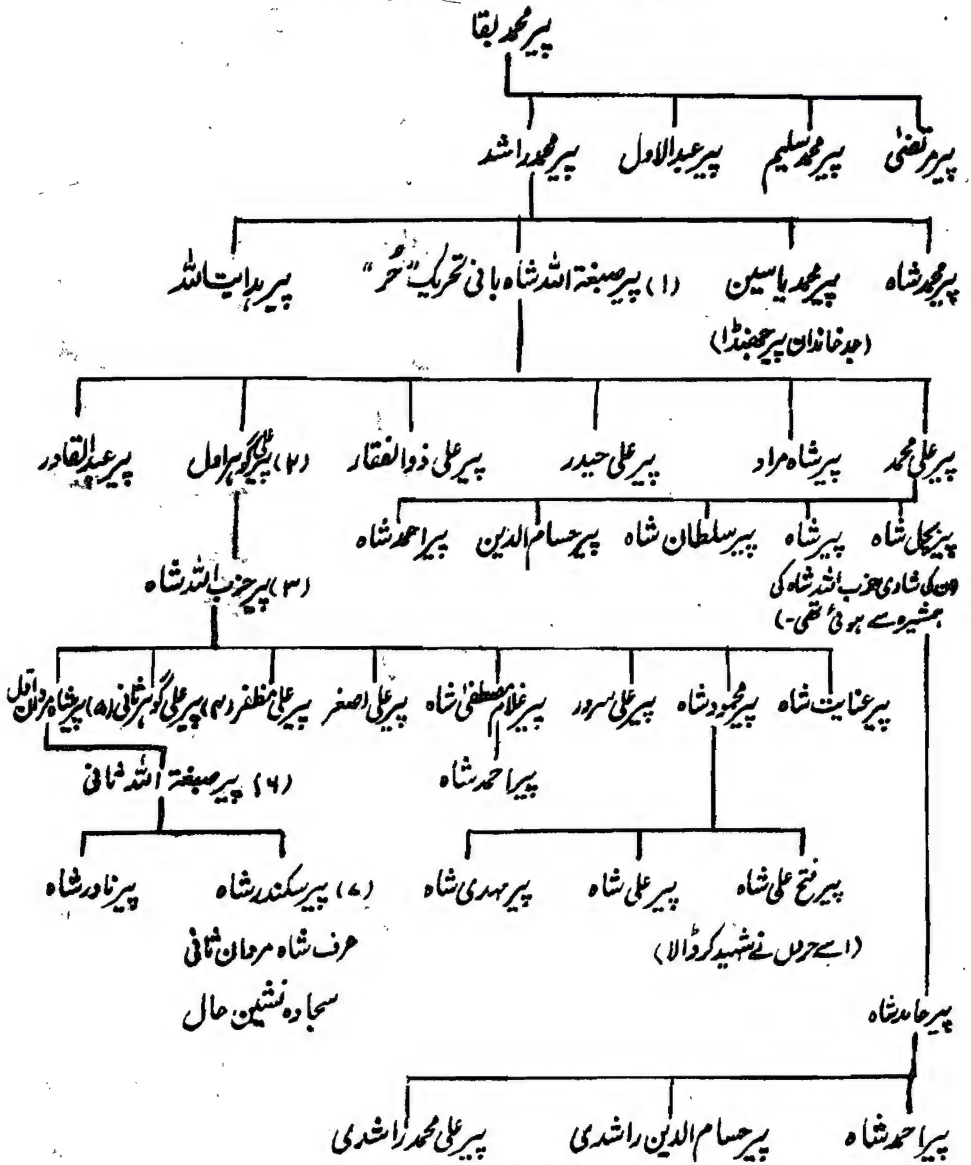 پیر محمد بقا
پیر مرتضیٰ پیر محمد سلیم پیر عبدالاول پیر محمد راشد
پیر محمد شاہ پیر محمد یاسین (۱) پیر صبغتہ اللہ شاہ بانی تحریک "حُر" پیر ہدایت اللہ
(جد خاندان پیر جھنڈا)
پیر علی محمد پیر شاہ مراد پیر علی حیدر پیر علی ذوالفقار (۲) پیر علی گوہر اول پیر عبدالقادر
پیر بچل شاہ پیر شاہ پیر سلطان شاہ پیر حسام الدین پیر احمد شاہ
(ان کی شادی حزب اللہ شاہ کی
ہمشیرہ سے ہوئی تھی۔)
(۳) پیر حزب اللہ شاہ
پیر عنایت شاہ پیر محمود شاہ پیر علی سرور پیر غلام مصطفیٰ شاہ پیر علی اصغر پیر علی مظفر (۴) پیر علی گوہر ثانی (۵) پیر شاہ مردان اول
پیر احمد شاہ (۶) پیر صبغتہ اللہ ثانی
پیر فتح علی شاہ پیر علی شاہ پیر مہدی شاہ (۷) پیر سکندر شاہ پیر نادر شاہ
(اسے حروں نے شہید کر ڈالا) عرف شاہ مردان ثانی
سجادہ نشین حال
پیر حامد شاہ
پیر احمد شاہ پیر حسام الدین راشدی پیر علی محمد راشدی